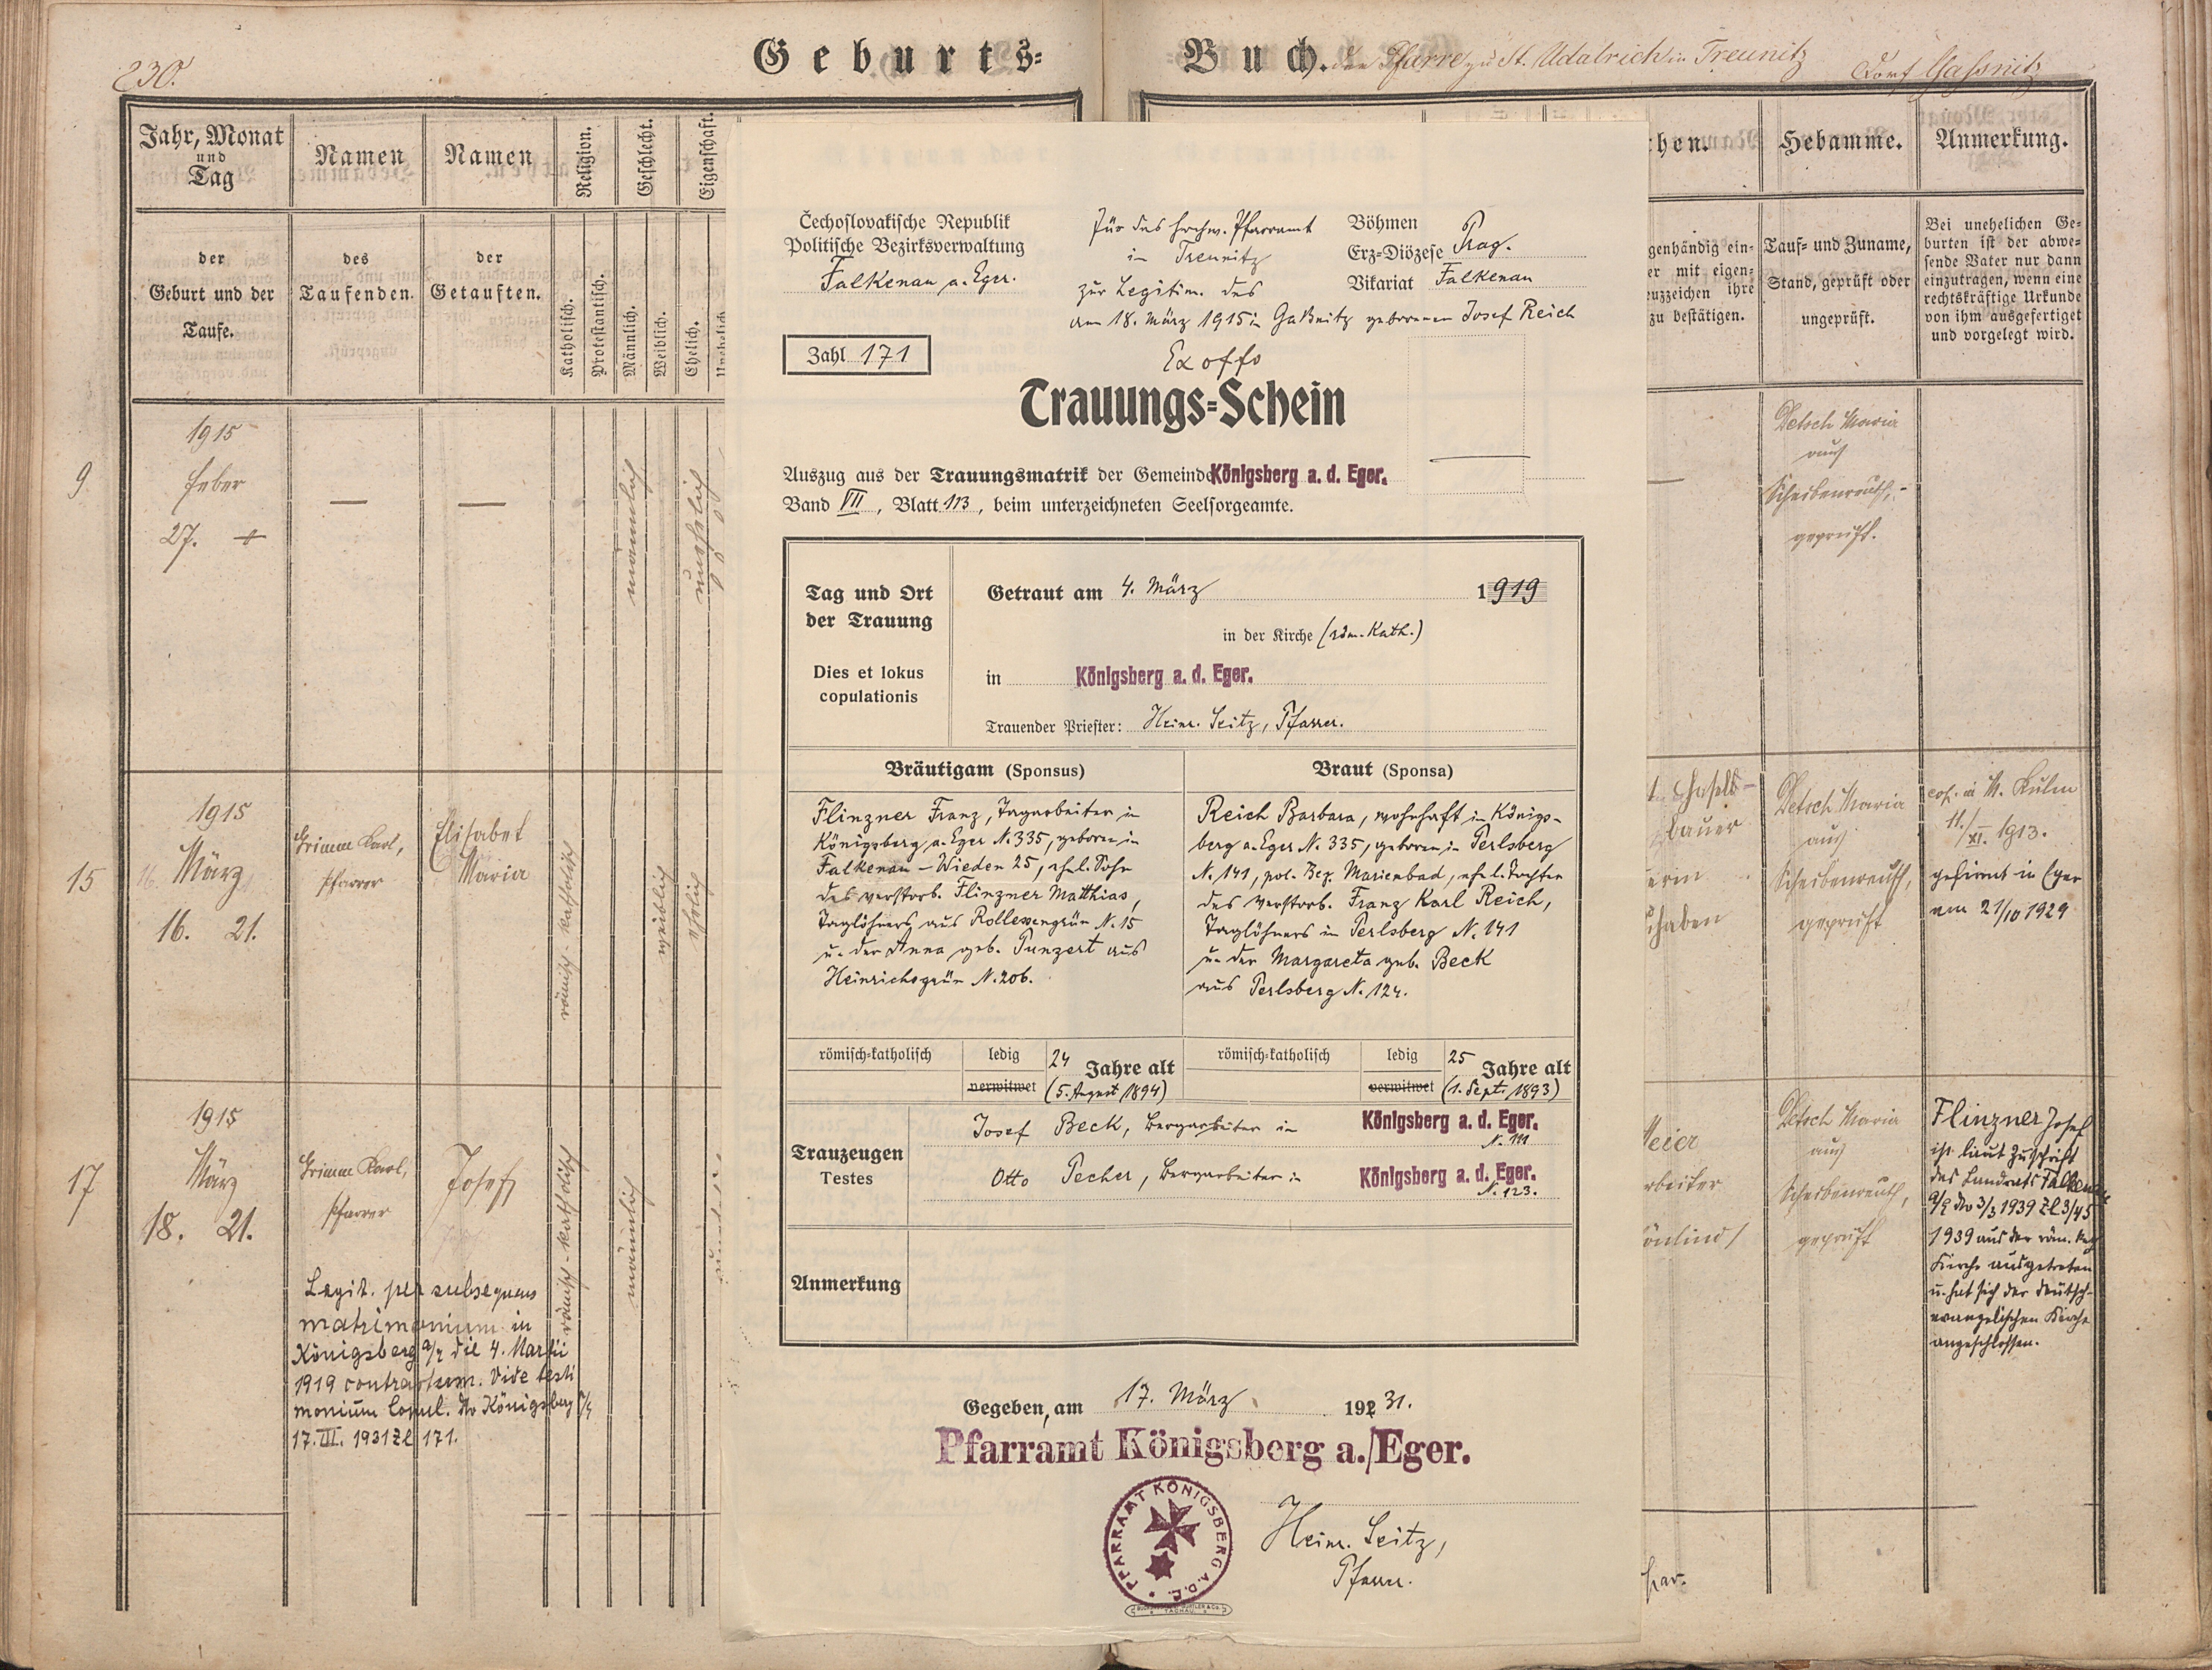 230.
Geburts=
Buch. der Pfarre zu St. Udalrich in Treunitz
Dorf Gaßnitz
Jahr, Monat
und
Tag
der
Geburt und der
Taufe.
Namen
des
Taufenden.
Namen
der
Getauften.
Religion.
Katholisch.
Protestantisch.
Geschlecht.
Männlich.
Weiblich.
Eigenschaft.
Ehelich.
9
1915
Feber
27. +
—
—
männlich
unehelich
15
1915
März
16. 21.
Grimm Karl,
Pfarrer
Elisabet
Maria
römisch-katholisch
weiblich
ehelich
17
1915
März
18. 21.
Grimm Karl,
Pfarrer
Josef
römisch-katholisch
männlich
Legit. per subsequens
matrimonium in
Königsberg a/E die 4. Martii
1919 contractum. Vide testi
monium Copul. dto Königsberg a/E
17. III. 1931 Zl 171.
Čechoslovakische Republik
Politische Bezirksverwaltung
Falkenau a. Eger.
Zahl 171
Für das hochw. Pfarramt
in Treunitz
zur Legitim. des
am 18. März 1915 in Gaßnitz geborenen Josef Reich
Böhmen
Erz=Diözese Prag.
Vikariat Falkenau
Ex offo
Trauungs=Schein
Auszug aus der Trauungsmatrik der Gemeinde Königsberg a. d. Eger.
Band VII, Blatt 113, beim unterzeichneten Seelsorgeamte.
Tag und Ort
der Trauung
Dies et lokus
copulationis
Getraut am 4. März 1919
in der Kirche (röm.-kath.)
in Königsberg a. d. Eger.
Trauender Priester: Heinr. Seitz, Pfarrer.
Bräutigam (Sponsus)
Flinzner Franz, Tagarbeiter in
Königsberg a. Eger N. 335, geboren in
Falkenau – Wieden 25, ehel. Sohn
des verstorb. Flinzner Matthias,
Taglöhners aus Rollessengrün N. 15
u. der Anna geb. Punzert aus
Heinrichsgrün N. 206.
Braut (Sponsa)
Reich Barbara, wohnhaft in Königs-
berg a. Eger N. 335, geboren in Perlsberg
N. 141, pol. Bez. Marienbad, ehel. Tochter
des verstorb. Franz Karl Reich,
Taglöhners in Perlsberg N. 141
u. der Margareta geb. Beck
aus Perlsberg N. 124.
römisch=katholisch
ledig
verwitwet
24 Jahre alt
(5. August 1894)
römisch=katholisch
ledig
verwitwet
25 Jahre alt
(1. Sept. 1893)
Trauzeugen
Testes
Josef Beck, Bergarbeiter in Königsberg a. d. Eger.
N. 111
Otto Pecher, Bergarbeiter in Königsberg a. d. Eger.
N. 123.
Anmerkung
Gegeben, am 17. März 1931.
Pfarramt Königsberg a./Eger.
PFARRAMT KÖNIGSBERG A.D.E.
Heinr. Seitz,
Pfarrer.
TACHAU
chen.
genhändig ein-
er mit eigen-
uzzeichen ihre
zu bestätigen.
Hebamme.
Tauf= und Zuname,
Stand, geprüft oder
ungeprüft.
Anmerkung.
Bei unehelichen Ge-
burten ist der abwe-
sende Vater nur dann
einzutragen, wenn eine
rechtskräftige Urkunde
von ihm ausgefertiget
und vorgelegt wird.
Detsch Maria
aus
Scheibenreuth,
geprüft.
bauer
haben
Detsch Maria
aus
Scheibenreuth,
geprüft
cop. in M. Kulm
11./XI. 1913.
gefirmt in Eger
am 21/10 1929
Meier
rbeiter
Detsch Maria
aus
Scheibenreuth,
geprüft
Flinzner Josef
ist laut Zuschrift
des Landrats Falkenau
a/E dto 3/3 1939 Zl 3/45
1939 aus der röm. kath
Kirche ausgetreten
u. hat sich der deutsch-
evangelischen Kirche
angeschlossen.